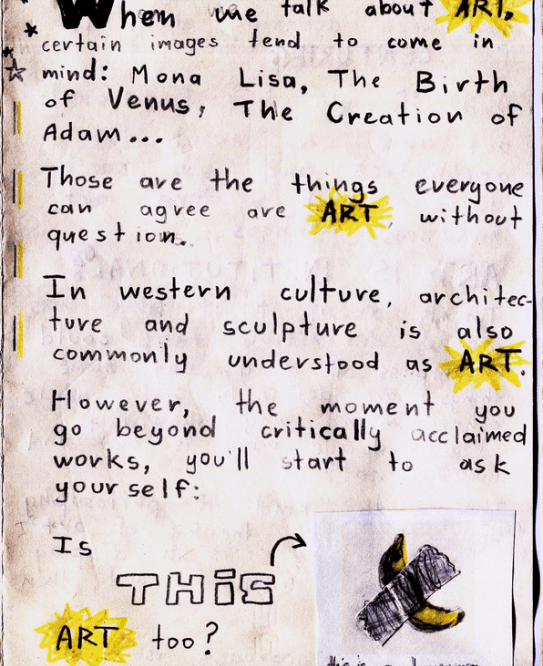 When we talk about ART,
certain images tend to come in
mind: Mona Lisa, The Birth
of Venus, The Creation of
Adam...
Those are the things everyone
can agree are ART, without
question.
In western culture, architec-
ture and sculpture is also
commonly understood as ART.
However, the moment you
go beyond critically acclaimed
works, you'll start to ask
yourself:
Is
THiS
ART too?
this is a